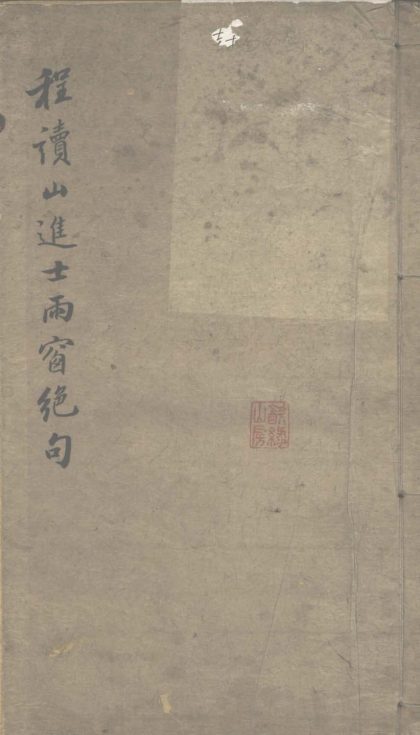 程讀山進士雨窗絶句
山房